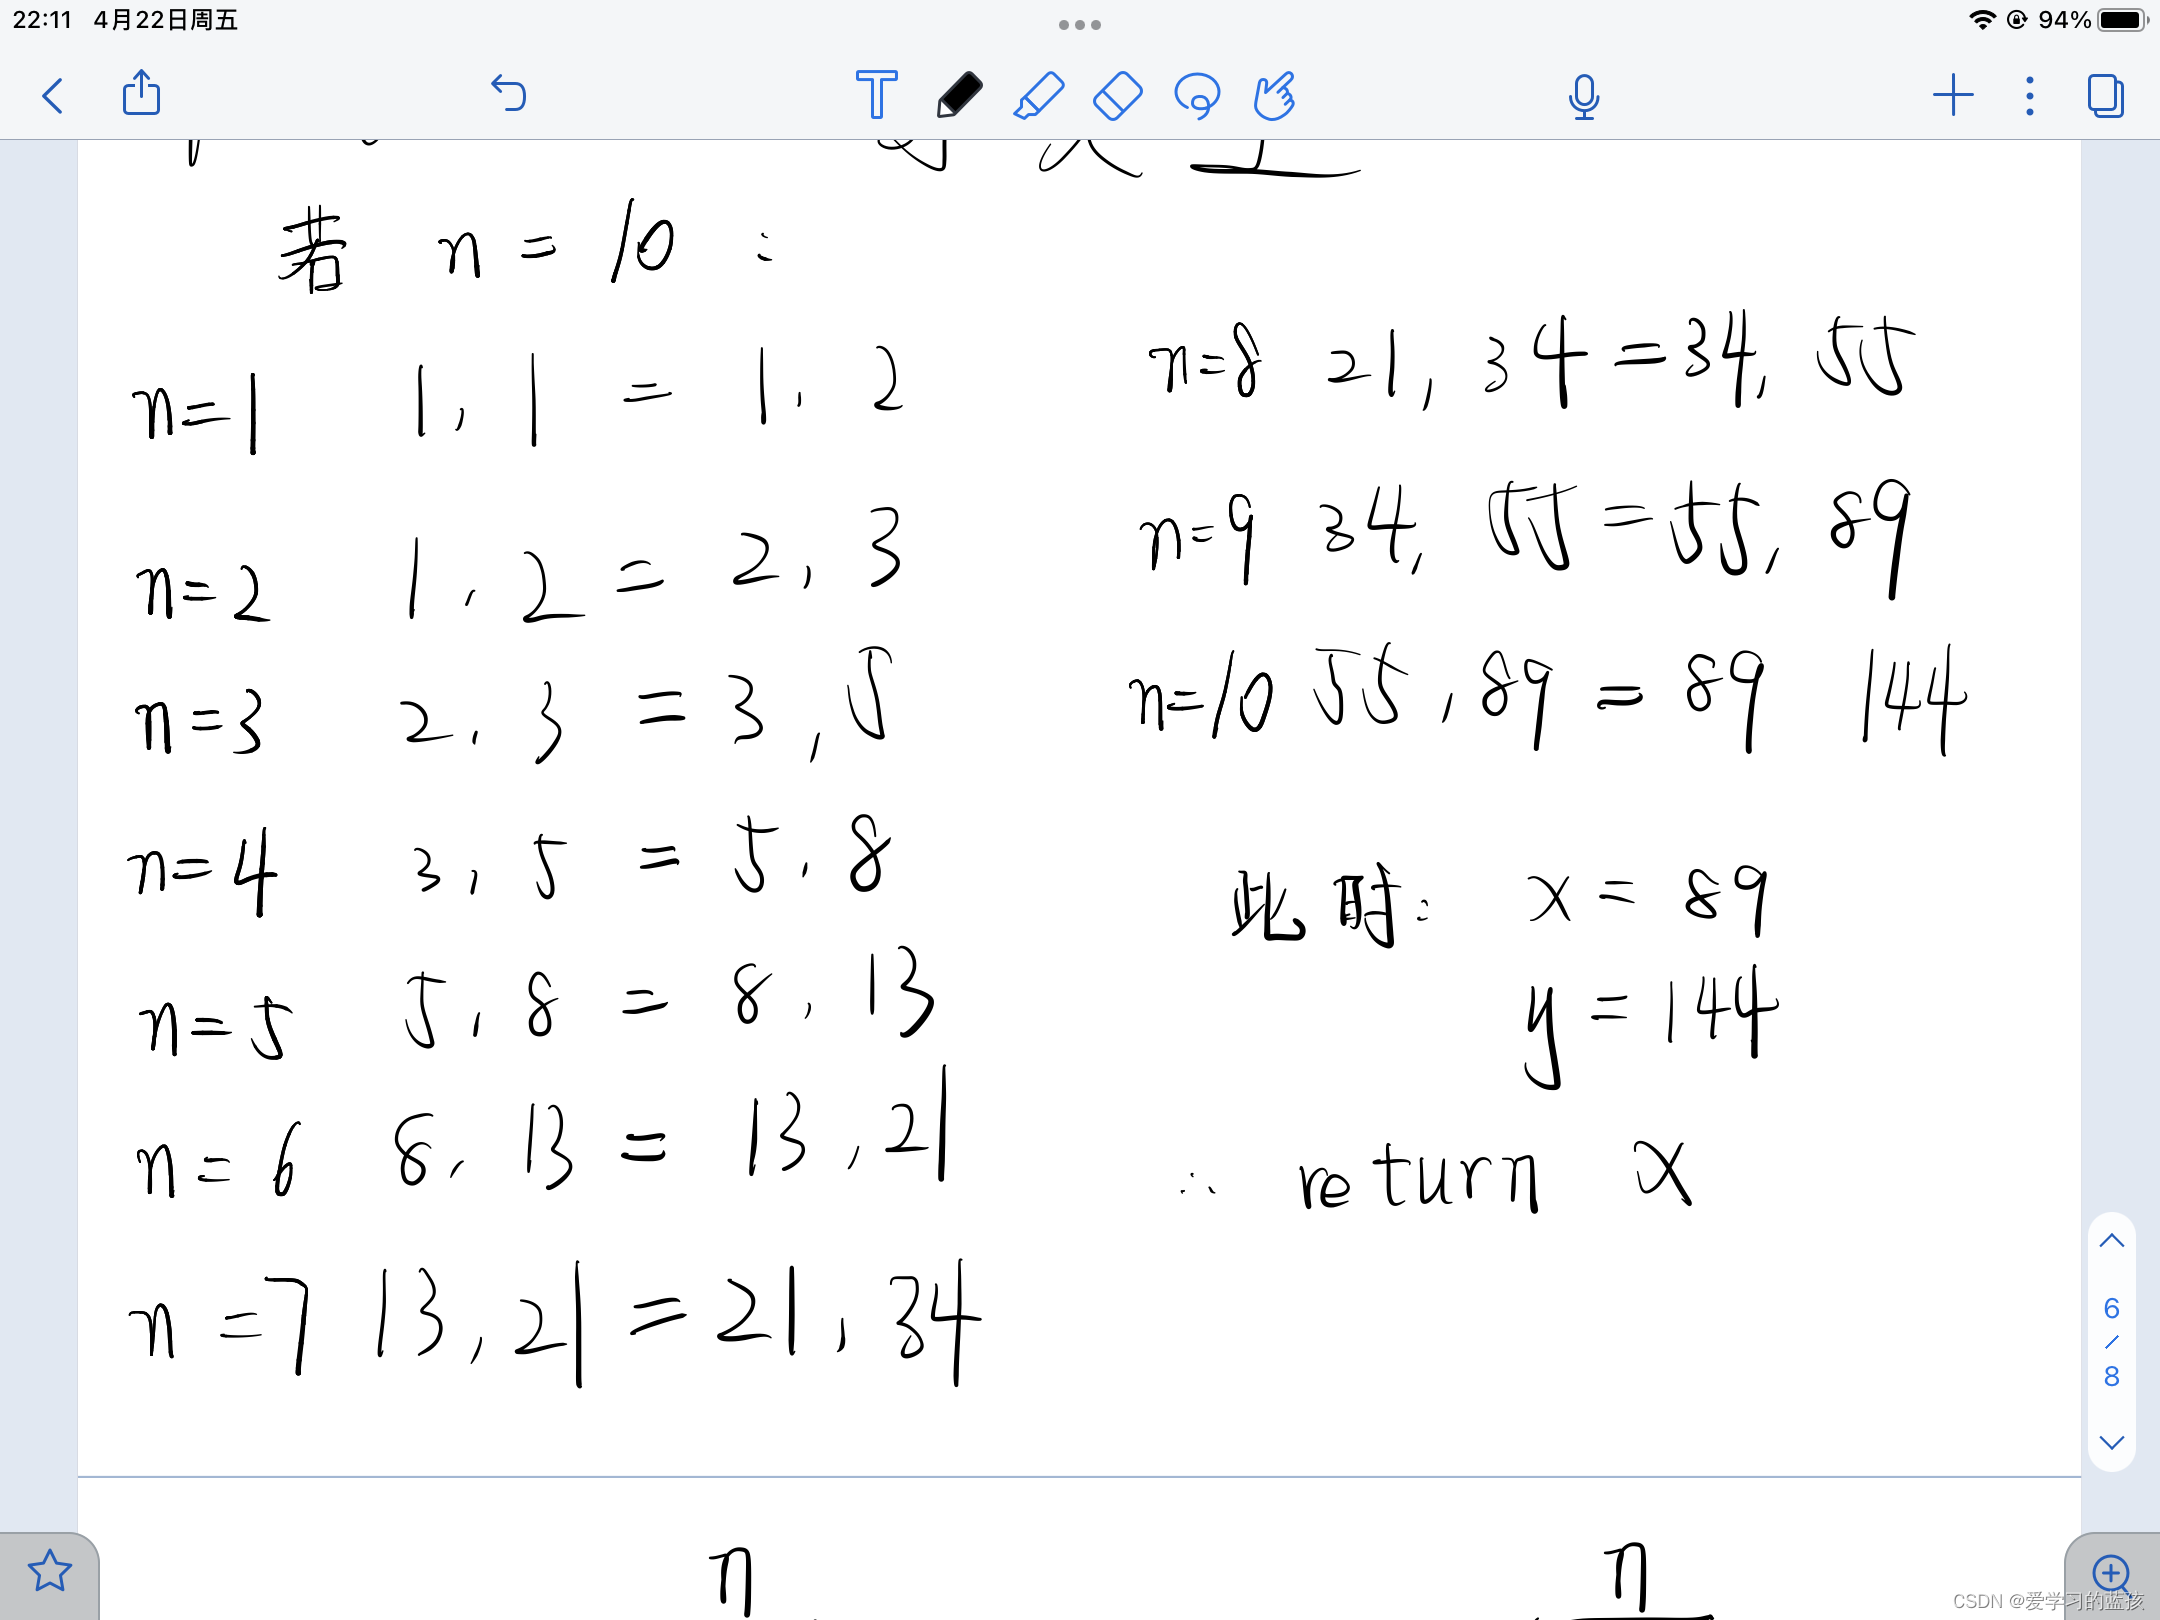 22:11 4月22日周五
94%
若 n = 10 :
n=1 1, 1 = 1, 2
n=2 1, 2 = 2, 3
n=3 2, 3 = 3, 5
n=4 3, 5 = 5, 8
n=5 5, 8 = 8, 13
n=6 8, 13 = 13, 21
n=7 13, 21 = 21, 34
n=8 21, 34 = 34, 55
n=9 34, 55 = 55, 89
n=10 55, 89 = 89 144
此时: x = 89
y = 144
∴ return x
6
/
8
n n
CSDN @爱学习的蓝孩